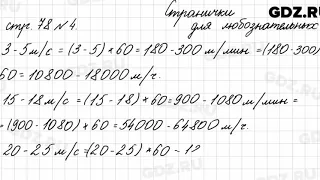 GDZ.RU
Странички
для любознательных
стр. 78 №4
3-5 м/с = (3-5)*60=180-300 м/мин = (180-300)
60=10800-18000 м/ч.
15-18 м/с = (15-18)*60=900-1080 м/мин =
=(900-1080)*60=54000-64800 м/ч.
20-25 м/с =(20-25)*60-1